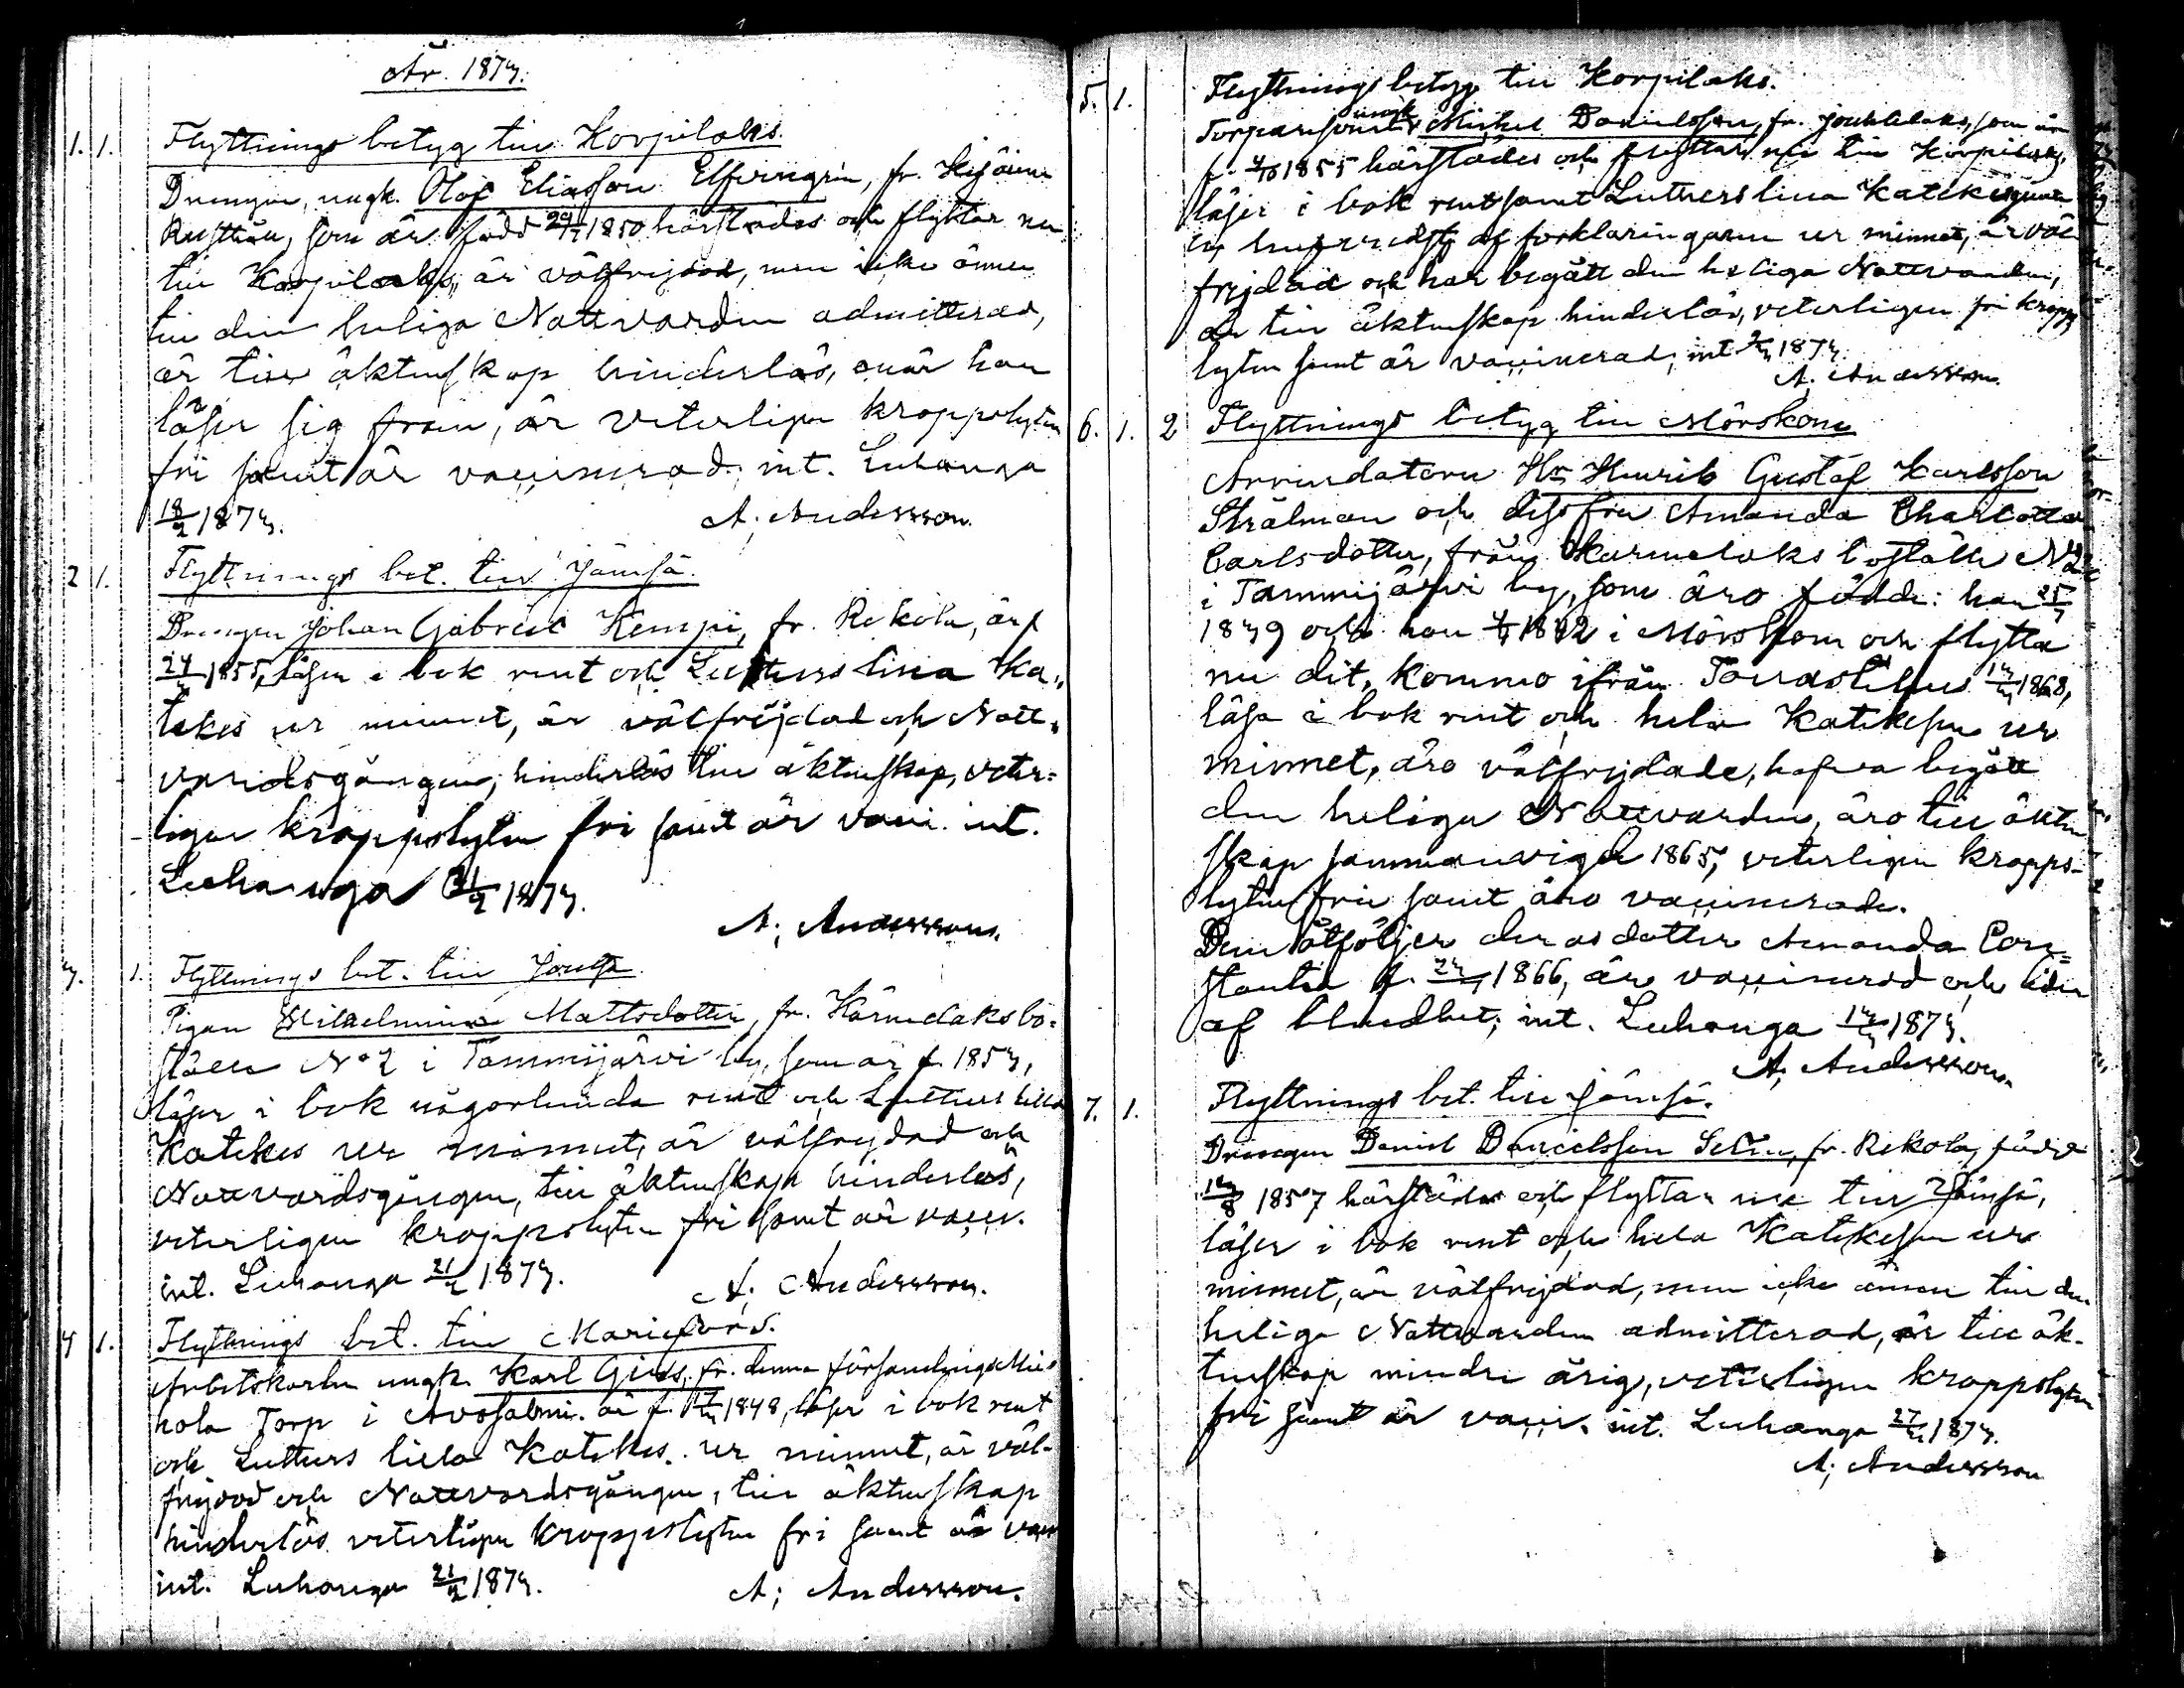 År. 1873.
1. 1. Flyttnings betyg till Korpilaks.
Drengen, ungk. Olof Eliasson Elfvengrén, fr.
Rusthåll, som är född 29/7 1850 härstädes och flyttar nu
till Korpilaks, är välfrejdad, men icke ännu
till den heliga Nattvarden admitterad,
är till äktenskap hinderlös, enär han
läser sig fram, är veterligen kroppslyten
fri samt är vaccinerad. int. Luhanga
18/2 1873. A. Andersson.
2 1. Flyttnings bet. till Jämsä.
Drengen Johan Gabriel Kempi, fr. Rekola, är f.
1855, läser i bok rent och Luthers lilla Ka-
tekes ur minnet, är välfrejdad och Natt-
vardsgången, hinderlös till äktenskap, veter-
ligen kroppslyten fri samt är vacci. int.
Luhanga 21/2 1873.
A. Andersson.
3. 1. Flyttnings bet. till Jämsä
Pigan Wilhelmina Mattsdotter, fr. Kärmelaks bo-
ställe No 2 i Tammijärvi by, som är f. 1853,
läser i bok någorlunda rent och Luthers lilla
Katekes ur minnet, är välfrejdad och
Nattvardsgången, till äktenskap hinderlös,
veterligen kroppslyten fri samt är vacci.
int. Luhanga 21/2 1873. A. Andersson.
4 1. Flyttnings bet. till Mariefors.
Arbetskarlen ungk. Karl Gius, fr. denna församlings Mik-
kola Torp i Avosalmi. är f. 1848, läser i bok rent
och Luthers lilla Katekes. ur minnet, är väl-
frejdad och Nattvardsgången, till äktenskap
hinderlös veterligen kroppslyten fri samt är vacci
int. Luhanga 21/2 1873. A. Andersson.
5. 1. Flyttnings betyg till Korpilaks.
Torparesonen ungk Mickel Danielsson, fr. Joutslaks, som är
f. 4/10 1855 härstädes och flyttar nu till Korpilaks,
läser i bok rent samt Luthers lilla Katekes
af förklaringarne ur minnet, är väl
frejdad och har begått den heliga Nattvarden,
är till äktenskap hinderlös, veterligen fri kropps
lyten samt är vaccinerad, int 1873.
A. Andersson.
6. 1. 2 Flyttnings betyg till Mörskom
Arrendatorn Hr Henrik Gustaf Karlsson
Strålman och dess fru Amanda Charlotta
Carlsdotter, från Kärmelaks boställe No 2
i Tammijärvi by, som äro födde: han 25/7
1839 och hon 1842 i Mörskom och flytta
nu dit, kommo ifrån Tavastehus 1868,
läsa i bok rent och hela Katekesen ur
minnet, äro välfrejdade, hafva begått
den heliga Nattvarden, äro till äkten
skap sammanvigda 1865, veterligen kropps-
lyten frie samt äro vaccinerade.
Dem åtföljer deras dotter Amanda Con-
stantia f. 1866, är vaccinerad och lider
af blindhet, int. Luhanga 1873.
A. Andersson.
7. 1. Flyttnings bet. till Jämsä.
Drengen Daniel Danielsson Selin, fr. Rekola, född
1857 härstädes och flyttar nu till Jämsä,
läser i bok rent och hela Katekesen ur
minnet, är välfrejdad, men icke ännu till den
heliga Nattvarden admitterad, är till äk-
tenskap minderårig, veterligen kroppslyten
fri samt är vacci. int. Luhanga 1873.
A. Andersson